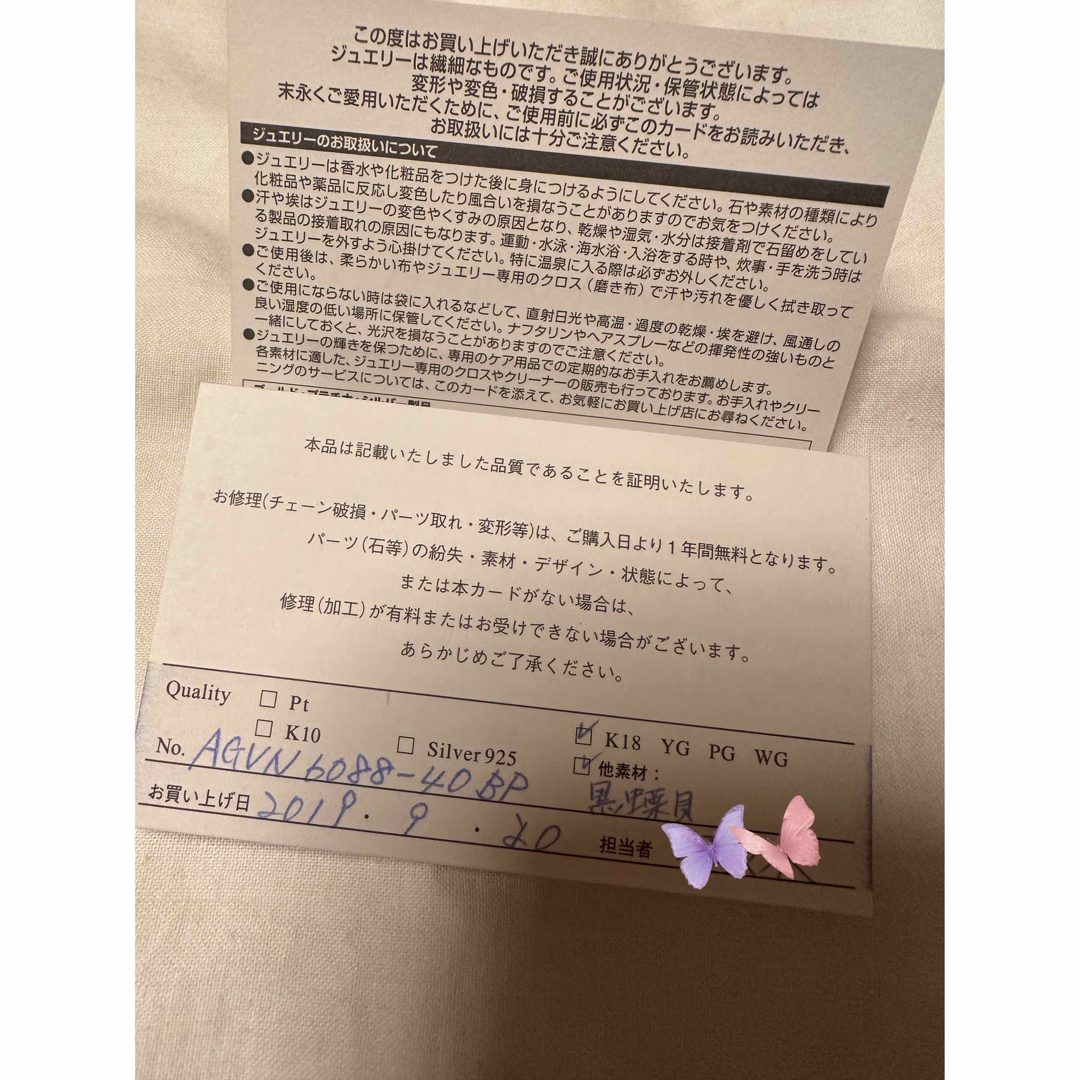 この度はお買い上げいただき誠にありがとうございます。
ジュエリーは繊細なものです。ご使用状況・保管状態によっては
変形や変色・破損することがございます。
末永くご愛用いただくために、ご使用前に必ずこのカードをお読みいただき、
お取扱いには十分ご注意ください。
ジュエリーのお取扱いについて
●ジュエリーは香水や化粧品をつけた後に身につけるようにしてください。石や素材の種類により
化粧品や薬品に反応し変色したり風合いを損なうことがありますのでお気をつけください。
●汗や埃はジュエリーの変色やくすみの原因となり、乾燥や湿気・水分は接着剤で石留めをしてい
る製品の接着取れの原因にもなります。運動・水泳・海水浴・入浴をする時や、炊事・手を洗う時は
ジュエリーを外すよう心掛けてください。特に温泉に入る際は必ずお外しください。
●ご使用後は、柔らかい布やジュエリー専用のクロス(磨き布)で汗や汚れを優しく拭き取って
ください。
●ご使用にならない時は袋に入れるなどして、直射日光や高温・過度の乾燥・埃を避け、風通しの
良い湿度の低い場所に保管してください。ナフタリンやヘアスプレーなどの揮発性の強いものと
一緒にしておくと、光沢を損なうことがありますのでご注意ください。
●ジュエリーの輝きを保つために、専用のケア用品での定期的なお手入れをお薦めします。
各素材に適した、ジュエリー専用のクロスやクリーナーの販売も行っております。お手入れやクリー
ニングのサービスについては、このカードを添えて、お気軽にお買い上げ店にお尋ねください。
ゴールド・プラチナ・シルバー製品
本品は記載いたしました品質であることを証明いたします。
お修理(チェーン破損・パーツ取れ・変形等)は、ご購入日より1年間無料となります。
パーツ(石等)の紛失・素材・デザイン・状態によって、
または本カードがない場合は、
修理(加工)が有料またはお受けできない場合がございます。
あらかじめご了承ください。
Quality □ Pt
□ K10 □ Silver925 ☑ K18 YG PG WG
No. AGVN6088-40BP ☑ 他素材: 黒蝶貝
お買い上げ日 2019.9.20 担当者